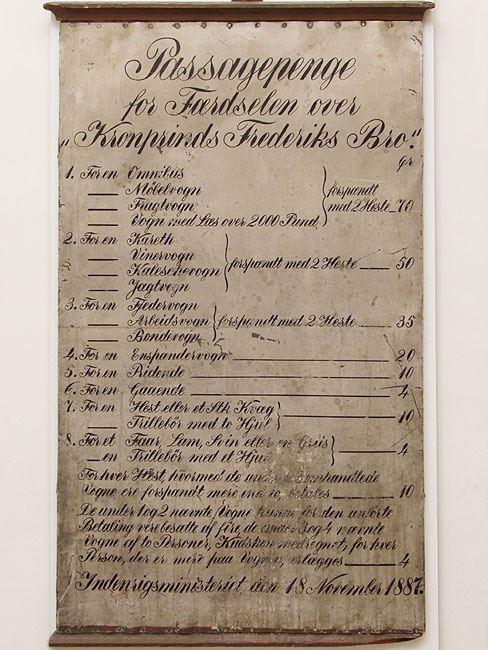 Passagepenge
for Færdselen over
„Kronprinds Frederiks Bro."
Ør
1. For en Omnibus
Møbelvogn
Fragtvogn
Vogn med Læs over 2000 Pund.
forspandt
med 2 Heste 70
2. For en Kareth
Vinervogn
Kaleschevogn
Jagtvogn
forspandt med 2 Heste 50
3. For en Fjedervogn
Arbeidsvogn
Bondevogn
forspandt med 2 Heste 35
4. For en Enspændervogn 20
5. For en Ridende 10
6. For en Gaaende 4
7. For en Hest eller et Stk Kvæg
Trillebör med to Hjul
10
8. For et Faar, Lam, Svin eller en Griis
en Trillebör med et Hjul
4
For hver Hest, hvormed de under omhandlede
Vogne ere forspandt mere end to, betales 10
De under 1 og 2 nævnte Vogne kunne for den anførte
Betaling være besatte af fire, de under 3 og 4 nævnte
Vogne af to Personer, Kudsken medregnet, for hver
Person, der er mere paa Vognen, erlægges 4
Indenrigsministeriet, den 18 November 1887.